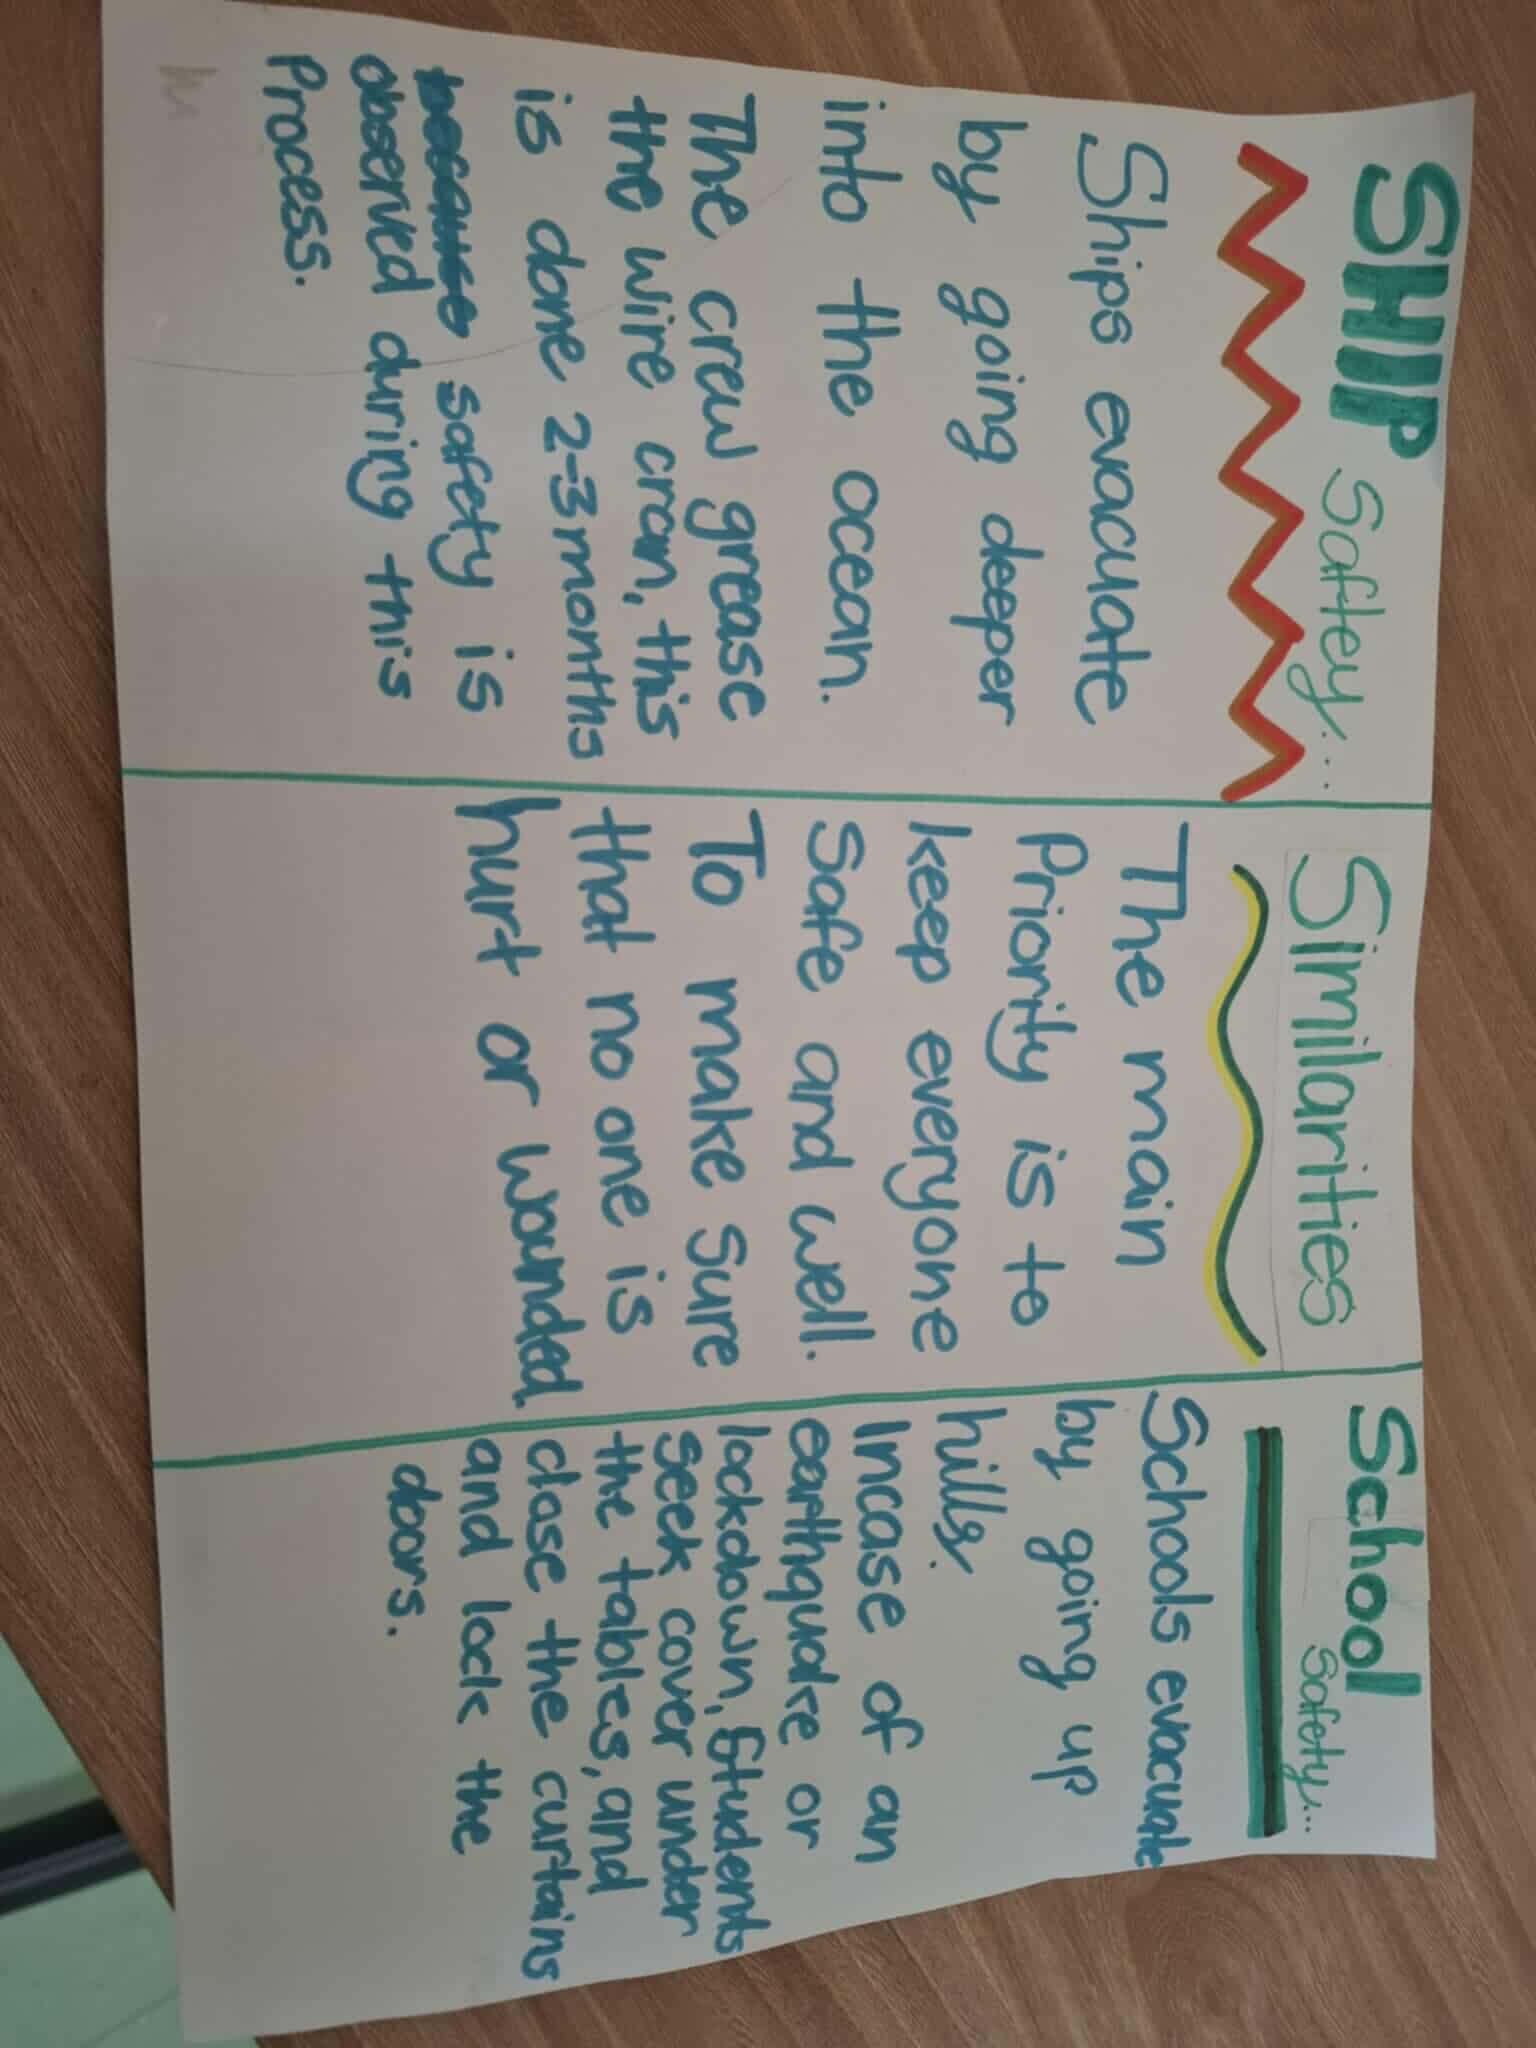 SHIP Saftey...
Ships evacuate
by going deeper
into the ocean.
The crew grease
the wire cran, this
is done 2-3 months
because safety is
observed during this
Process.
Similarities
The main
Priority is to
keep everyone
Safe and well.
To make sure
that no one is
hurt or wounded.
School Safety...
Schools evacuate
by going up
hills.
Incase of an
earthquake or
lockdown, students
seek cover under
the tables, and
close the curtains
and lock the
doors.